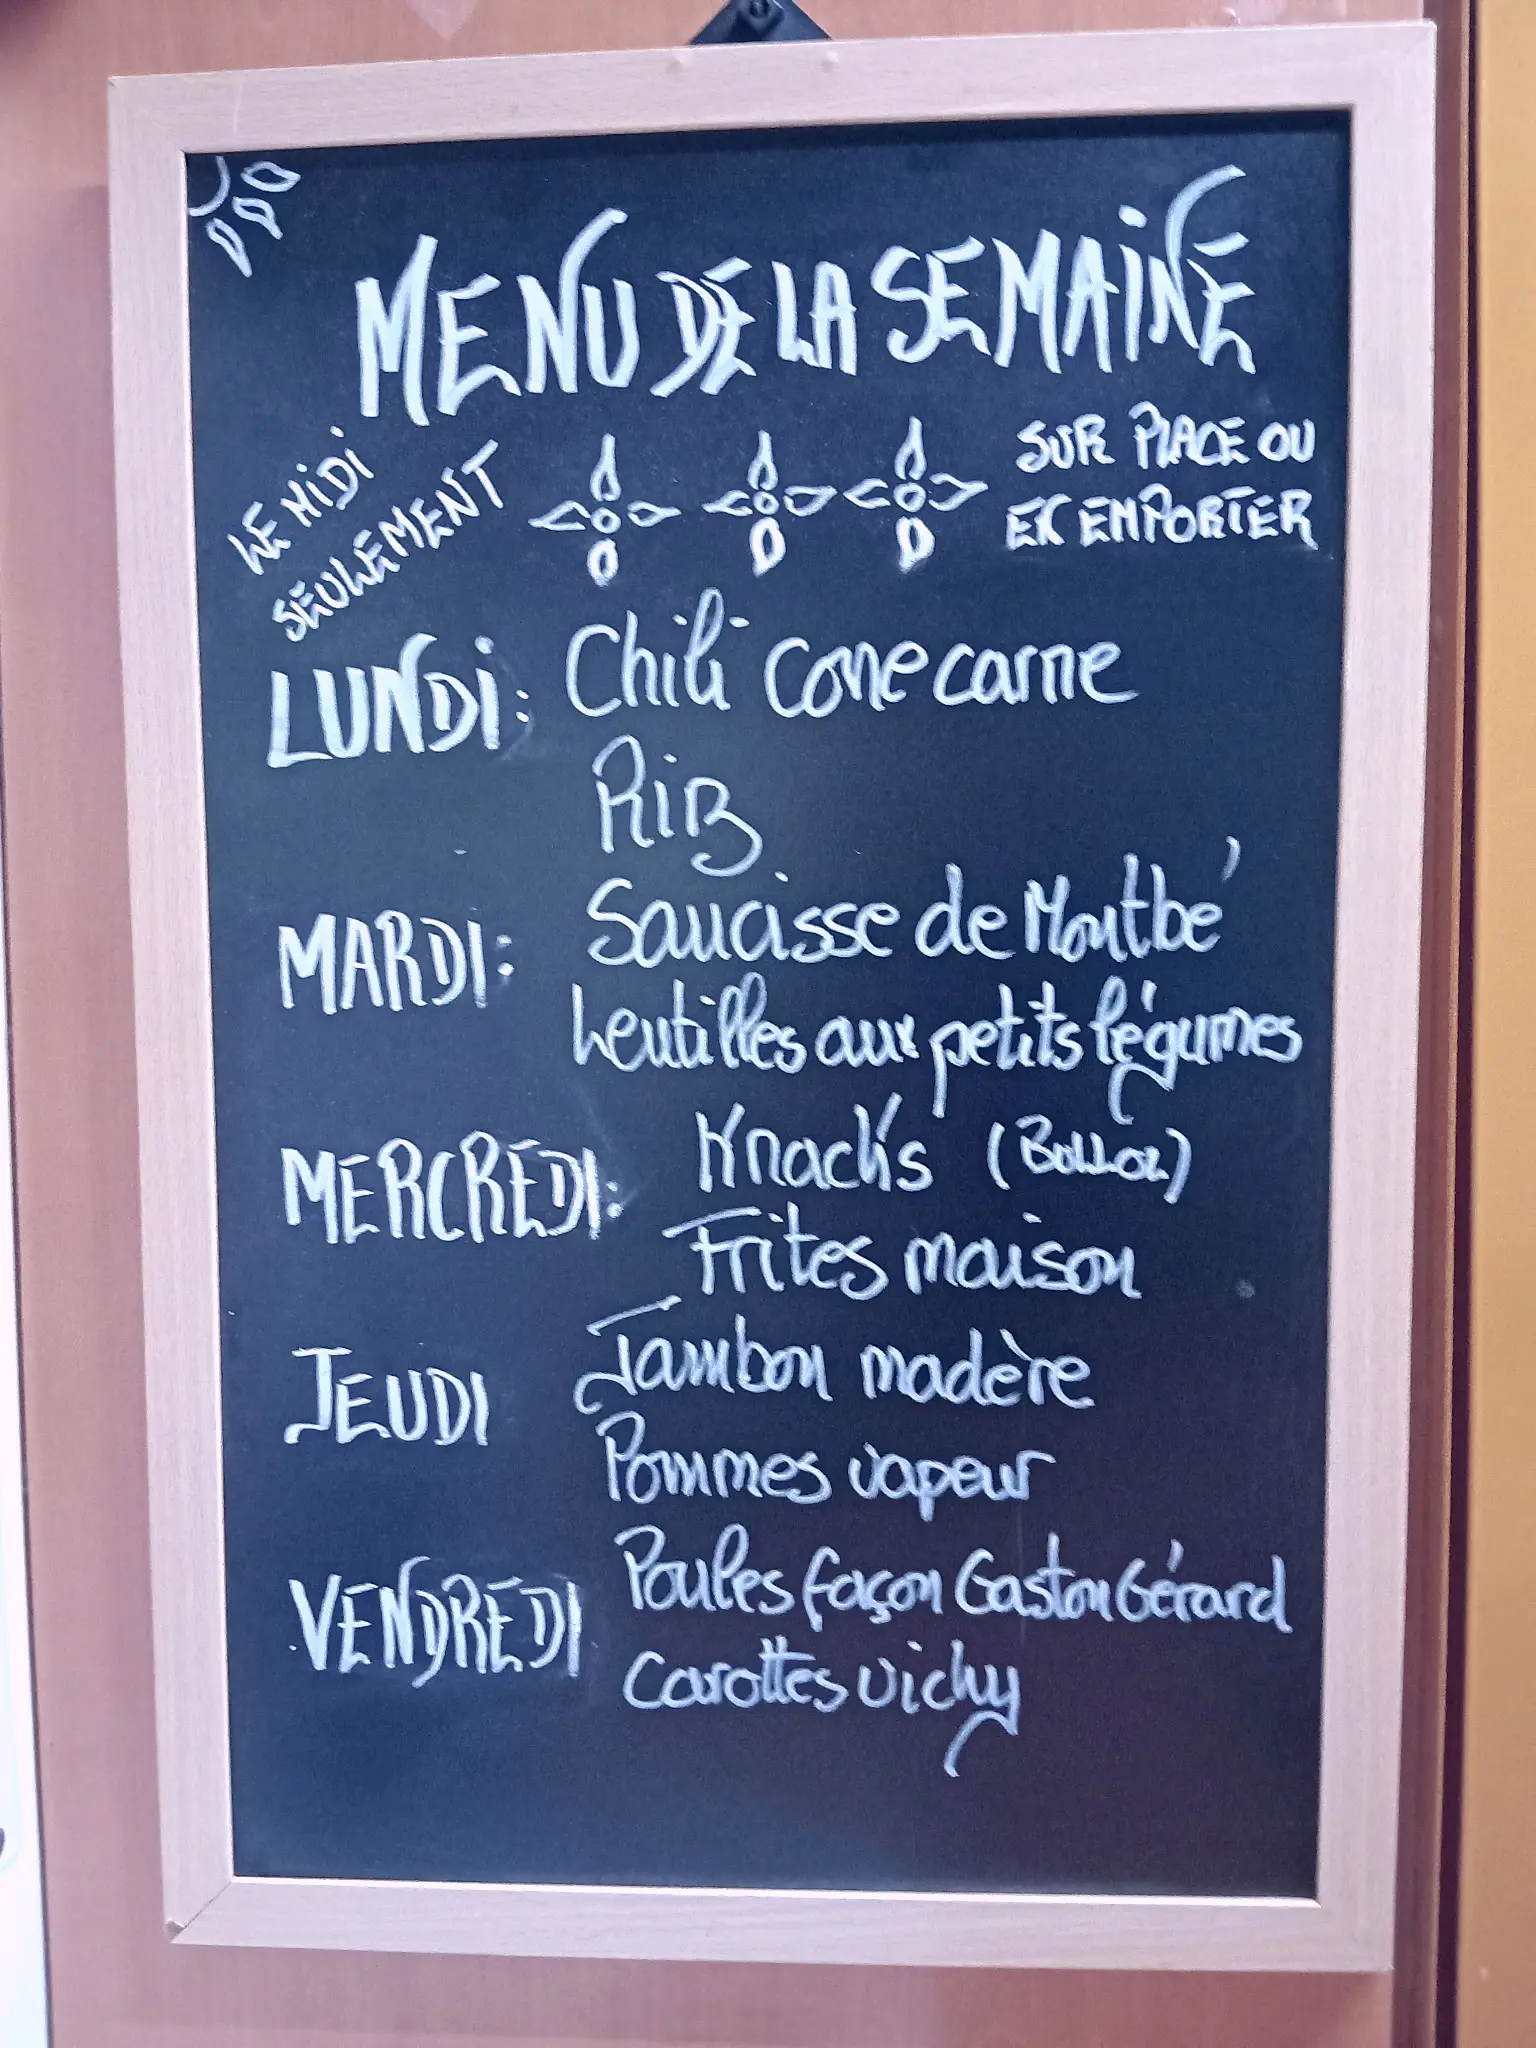 MENU DE LA SEMAINE
LE MIDI
SEULEMENT
SUR PLACE OU
EN EMPORTER
LUNDI: Chili cone carne
Riz
MARDI: Saucisse de Montbé
Lentilles aux petits légumes
MERCREDI: Knack's
Frites maison
JEUDI Jambon madère
Pommes vapeur
VENDREDI Poules façon Gaston Gérard
Carottes vichy